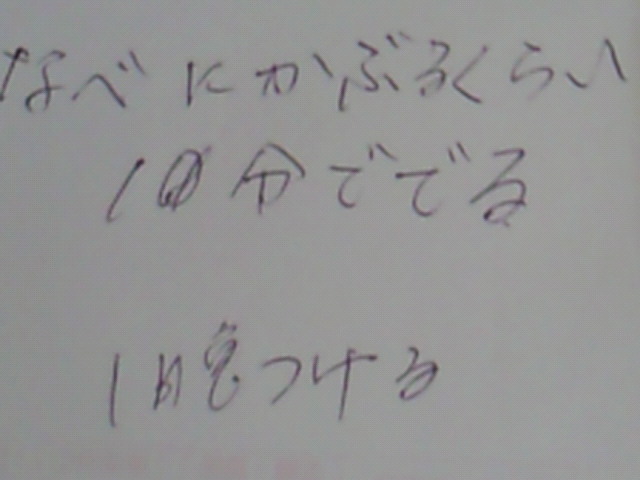 なべにかぶるくらい
10分ででる
1晩つける